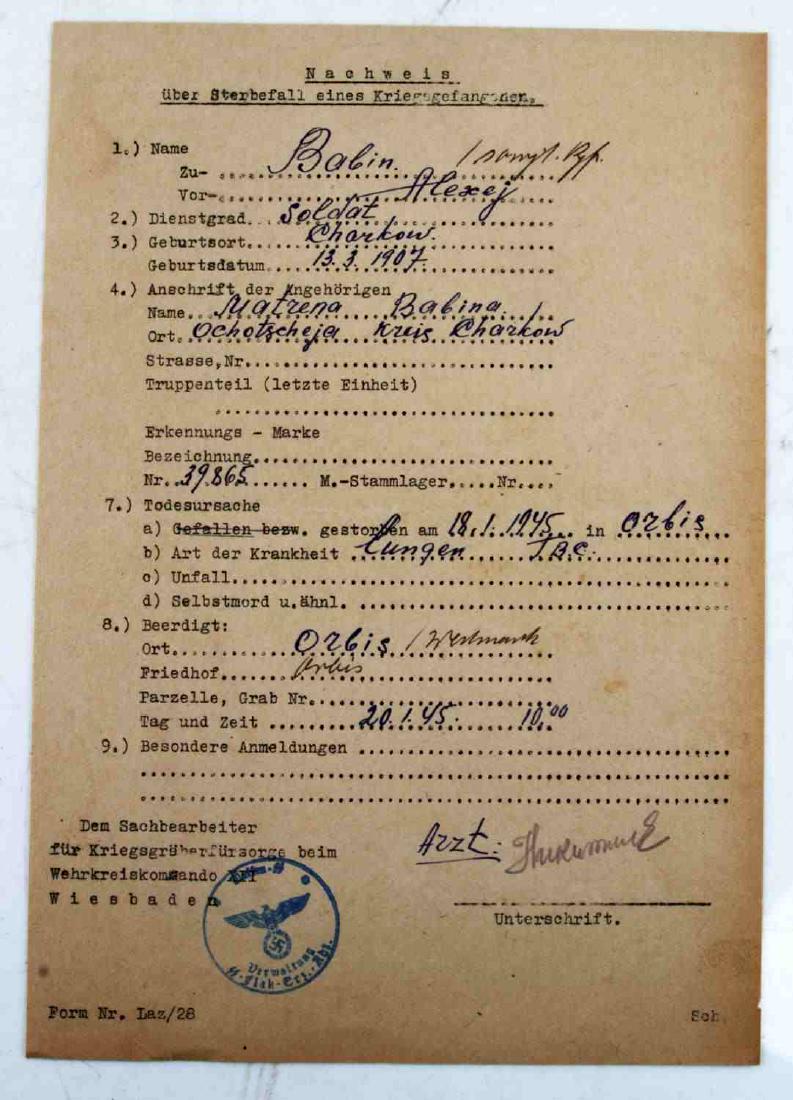 N a c h w e i s
über Sterbefall eines Kriegsgefangenen.
1.) Name
Zu- Babin. /
Vor- Alexej
2.) Dienstgrad Soldat
3.) Geburtsort Charkow.
Geburtsdatum 13.3.1907
4.) Anschrift der Angehörigen
Name Matrena Babina /
Ort. Ochotscheja Kreis Charkow
Strasse,Nr.
Truppenteil (letzte Einheit)
Erkennungs - Marke
Bezeichnung
Nr. 39.865 M.-Stammlager Nr.
7.) Todesursache
a) Gefallen bezw. gestorben am 18.1.1945 in Orbis
b) Art der Krankheit Lungen T.B.C.
c) Unfall
d) Selbstmord u.ähnl.
8.) Beerdigt:
Ort Orbis / Westmark
Friedhof Orbis
Parzelle, Grab Nr.
Tag und Zeit 20.1.45. 10.00
9.) Besondere Anmeldungen
Dem Sachbearbeiter
für Kriegsgräberfürsorge beim
Wehrkreiskommando XII
W i e s b a d e n
Arzt:
Unterschrift.
Verwaltung
Form Nr. Laz/28
Sch.